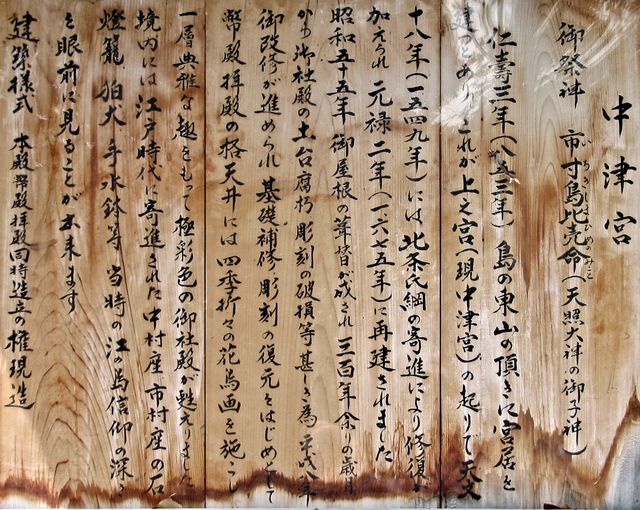 中津宮
御祭神 市寸島比売命(天照大神の御子神)
いちきしまひめのみこと
仁壽三年(八五三年)島の東山の頂きに宮居を
建つとあり これが上之宮(現中津宮)の起りで天文
十八年(一五四九年)には北条氏綱の寄進により修復が
加えられ 元禄二年(一六七五年)に再建されました
昭和五十五年 御屋根の葺替が成され 三百年余りの歳月
から御社殿の土台腐朽 彫刻の破損等甚しき為 平成八年
御改修が進められ 基礎補修 彫刻の復元をはじめとして
幣殿拝殿の格天井には四季折々の花鳥画を施こし
一層典雅な趣をもって極彩色の御社殿が甦えりました
境内には江戸時代に寄進された中村座 市村座の石
燈籠 狛犬 手水鉢等 当時の江の島信仰の深さ
を眼前に見ることが出来ます
建築様式 本殿幣殿拝殿同時造立の権現造